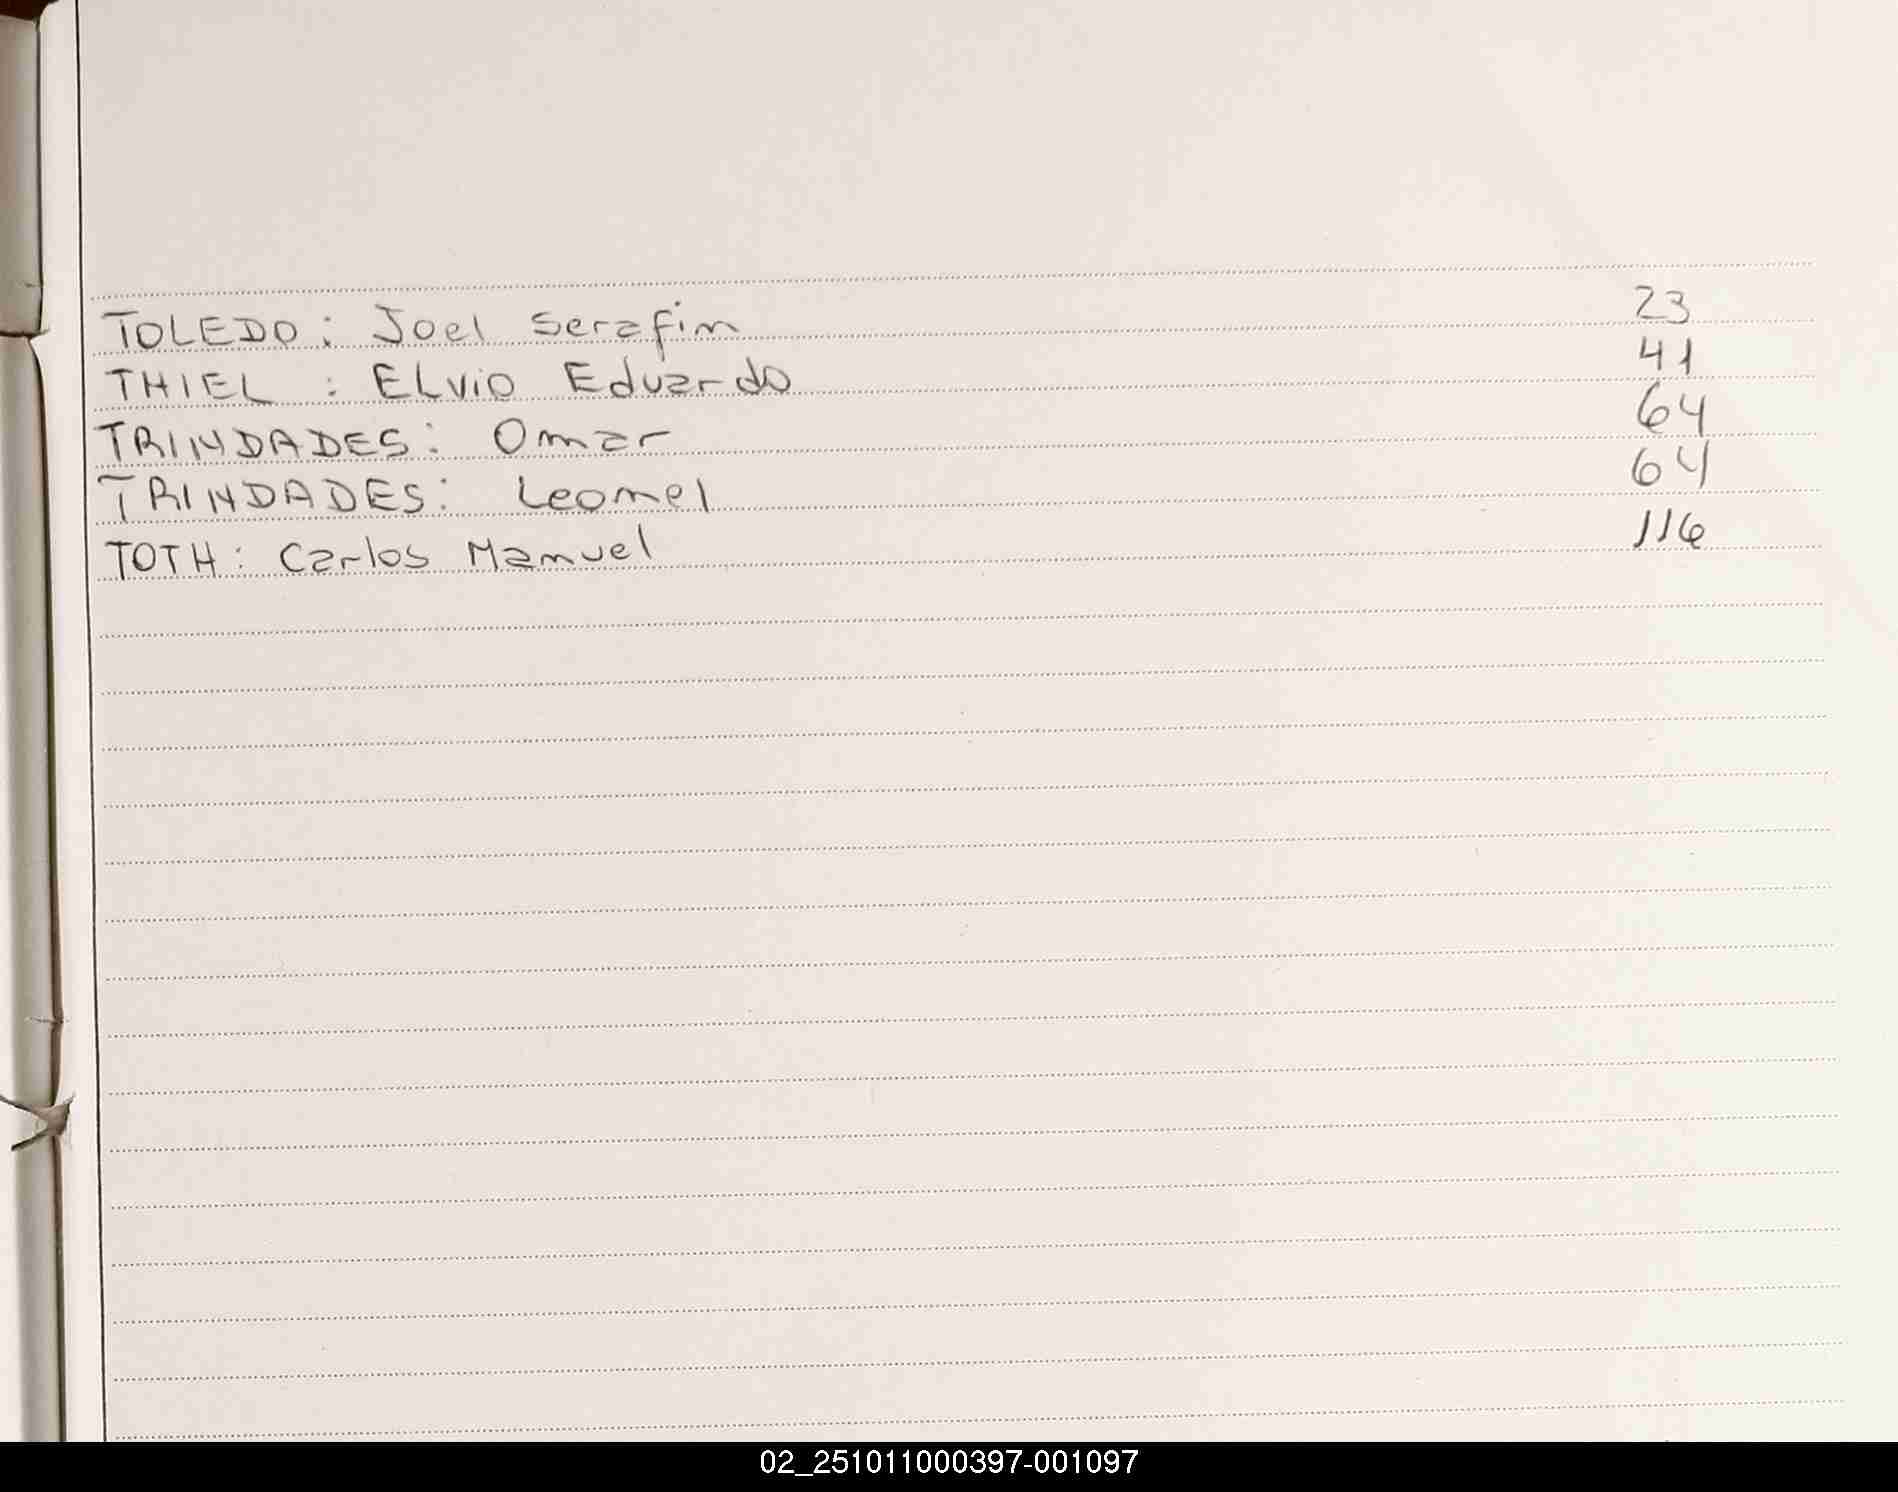 TOLEDO: Joel Serafim 23
THIEL: ELvio Eduardo 41
TRINDADES: Omar 64
TRINDADES: Leonel 64
TOTH: Carlos Manuel 116
02_251011000397-001097